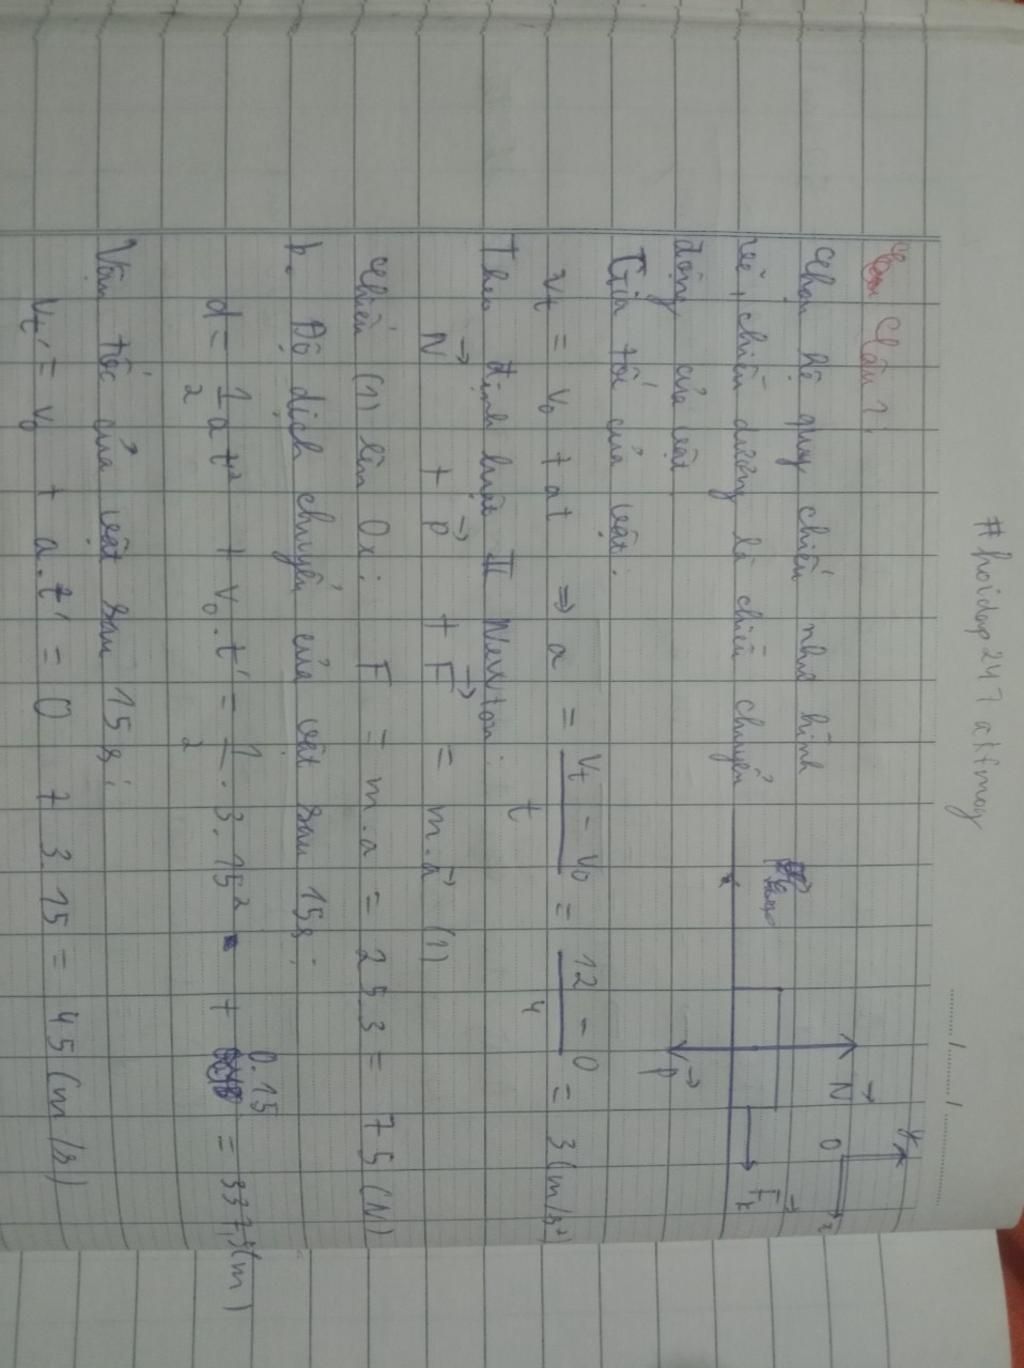 #hoidap247 atfmay
Câu 1:
Chọn hệ quy chiếu như hình
vẽ, chiều dương là chiều chuyển
động của vật
N→
y
O
x
F→k
P→
Gia tốc của vật:
vt = v0 + at => a = vt - v0 / t = 12 - 0 / 4 = 3 (m/s²)
Theo định luật II Newton:
N→ + P→ + F→ = m.a→ (1)
Chiếu (1) lên Ox: F = m.a = 25.3 = 75 (N)
b. Độ dịch chuyển của vật sau 15s:
d = 1/2 a t'² + v0.t' = 1/2 . 3.15² + 0.15 = 337,5 (m)
Vận tốc của vật sau 15s:
vt' = v0 + a.t' = 0 + 3.15 = 45 (m/s)